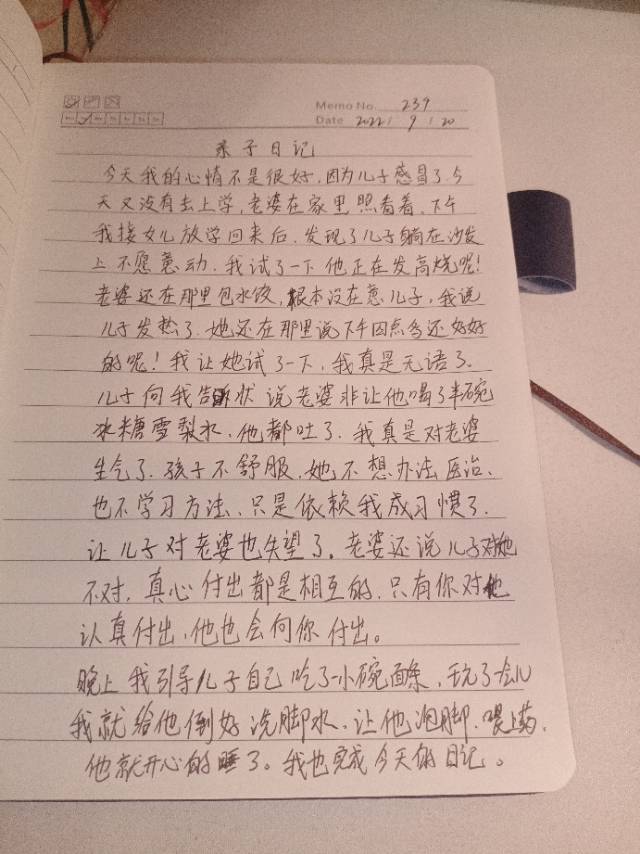 Memo No. 239
Date 2022 / 9 / 20
亲子日记
今天我的心情不是很好,因为儿子感冒了.今
天又没有去上学,老婆在家里照看着.下午
我接女儿放学回来后,发现了儿子躺在沙发
上不愿意动.我试了一下他正在发高烧呢!
老婆还在那里包水饺,根本没在意儿子,我说
儿子发热了.她还在那里说下午四点多还好好
的呢!我让她试了一下,我真是无语了.
儿子向我告状说老婆非让他喝了半碗
冰糖雪梨水.他都吐了.我真是对老婆
生气了.孩子不舒服,她不想办法医治、
也不学习方法、只是依赖我成习惯了.
让儿子对老婆也失望了.老婆还说儿子对她
不好.真心付出都是相互的.只有你对他
认真付出,他也会向你付出。
晚上我引导儿子自己吃了一小碗面条,玩了一会儿
我就给他倒好洗脚水.让他泡脚.喂上药.
他就开心的睡了。我也完成今天的日记。